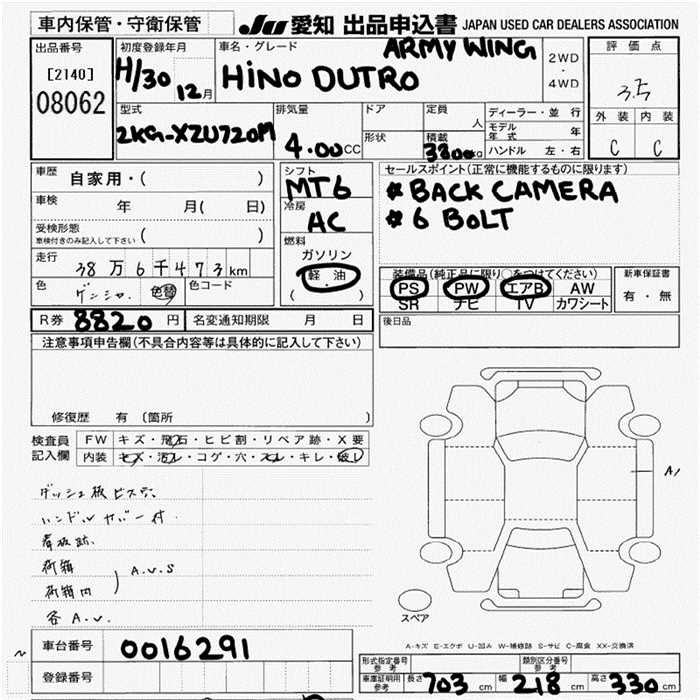 車内保管・守衛保管 JU 愛知 出品申込書 JAPAN USED CAR DEALERS ASSOCIATION
出品番号 初度登録年月 車名・グレード ARMY WING 評価点
[2140] H/30 12月 HINO DUTRO 2WD・4WD 3.5
08062
型式 排気量 ドア 定員 人 ディーラー・並行 外装 内装
2KG-XZU720M 4.00CC 形状 積載 3800kg モデル年式 年 C C
ハンドル 左・右
車歴 自家用・( ) シフト MT6 セールスポイント(正常に機能するものに限ります)
車検 年 月( 日) 冷房 AC # BACK CAMERA
受検形態 車検付きのみ記入して下さい ( ) # 6 BOLT
燃料 ガソリン
走行 38万6千473km 軽油 装備品(純正品に限り○をつけてください) 新車保証書
色 色替 色コード ( ) PS PW エアB AW 有・無
SR ナビ TV カワシート
R券 8820円 名変通知期限 月 日 後日品
注意事項申告欄(不具合内容等は具体的に記入して下さい)
修復歴 有 (箇所
検査員記入欄 FW キズ・飛石・ヒビ割・リペア跡・X要
内装 キズ・汚レ・コゲ・穴・スレ・キレ・破レ
ハンドルカバー付
看板跡
荷箱
荷箱内 A.U.S
各 A.U.
A1
スペア
A-キズ E-エクボ U-凹み W-補修跡 S-サビ C-腐食 XX-交換済
車台番号 0016291
登録番号
形式指定番号 参考 類別区分番号 参考
車庫証明用 参考 長さ 703cm 幅 218cm 高さ 330cm